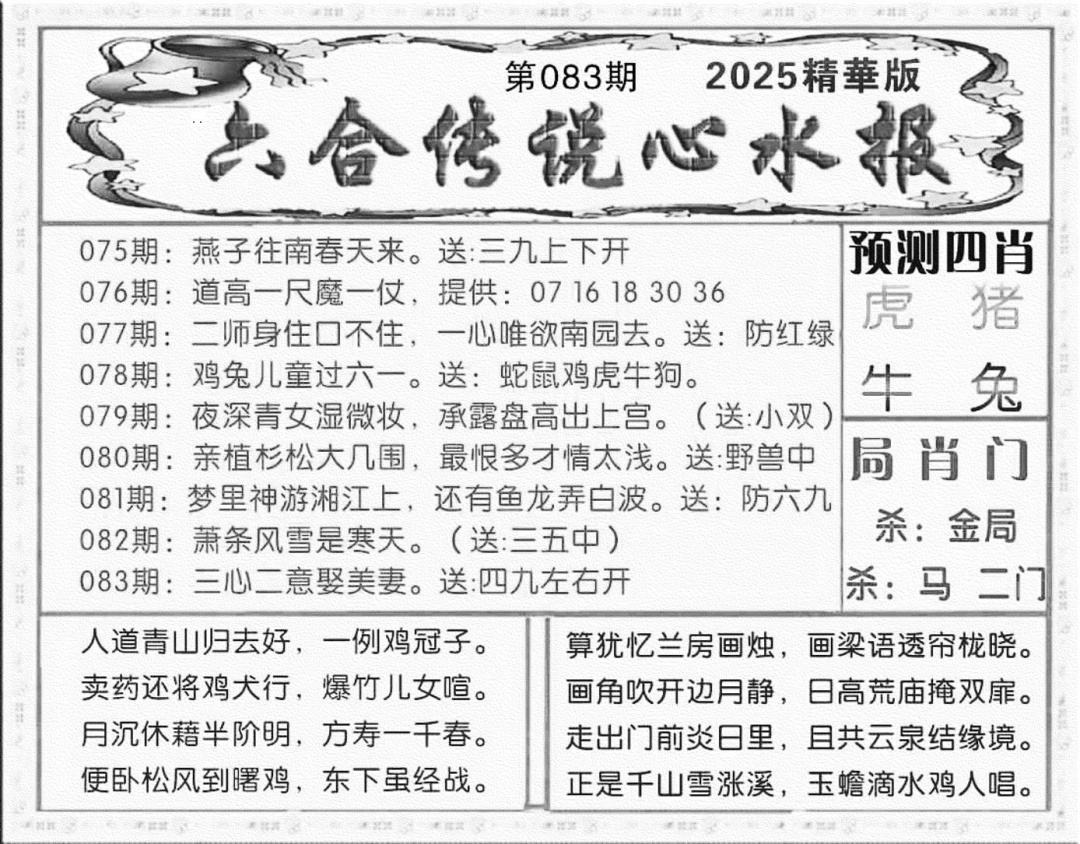 第083期 2025精華版
六合传说心水报
075期：燕子往南春天来。送:三九上下开
076期：道高一尺魔一仗，提供：07 16 18 30 36
077期：二师身住口不住，一心唯欲南园去。送：防红绿
078期：鸡兔儿童过六一。送：蛇鼠鸡虎牛狗。
079期：夜深青女湿微妆，承露盘高出上宫。（送:小双）
080期：亲植杉松大几围，最恨多才情太浅。送:野兽中
081期：梦里神游湘江上，还有鱼龙弄白波。送：防六九
082期：萧条风雪是寒天。（送:三五中）
083期：三心二意娶美妻。送:四九左右开
预测四肖
虎 猪
牛 兔
局肖门
杀：金局
杀：马 二门
人道青山归去好，一例鸡冠子。
卖药还将鸡犬行，爆竹儿女喧。
月沉休藉半阶明，方寿一千春。
便卧松风到曙鸡，东下虽经战。
算犹忆兰房画烛，画梁语透帘栊晓。
画角吹开边月静，日高荒庙掩双扉。
走出门前炎日里，且共云泉结缘境。
正是千山雪涨溪，玉蟾滴水鸡人唱。